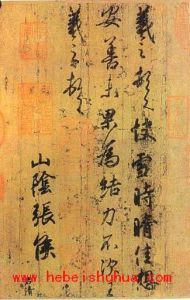 羲之頓首快雪時晴佳想
安善未果為結力不次王
羲之頓首
山陰張侯
www.hebeishuhua.com